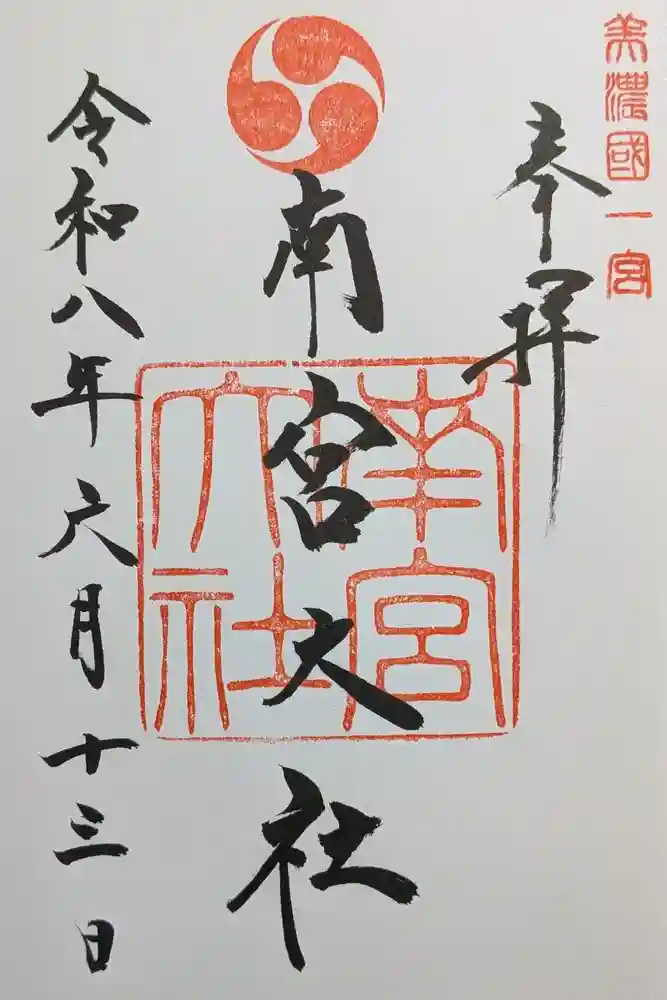 美濃國一宮
奉拝
南宮大社
南宮大社
令和八年六月十三日